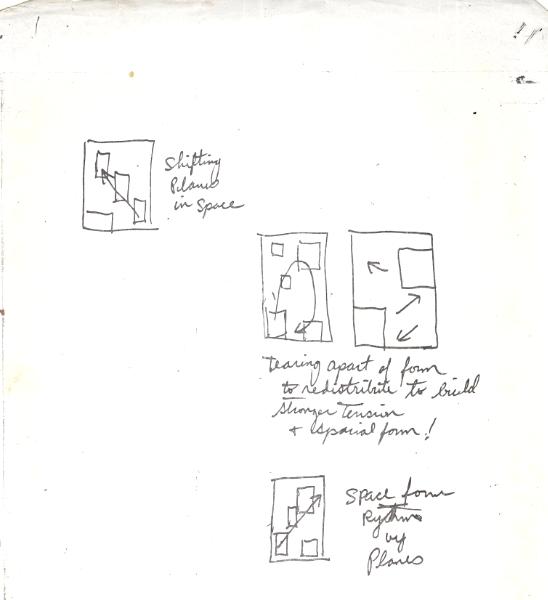 Shifting
Planes
in Space
tearing apart of form
to redistribute to build
stronger tension
+ spacial form!
Space form
Rythm
by
Planes